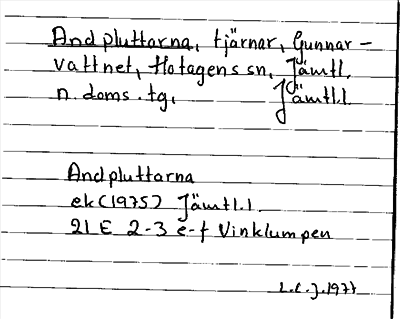 Andpluttarna, tjärnar, Gunnar-
vattnet, Hotagens sn, Jämtl.
n. doms. tg, Jämtl.l.
Andpluttarna
ek (1975) Jämtl.l
21 E 2-3 e-f Vinklumpen
L.C.J. 1977